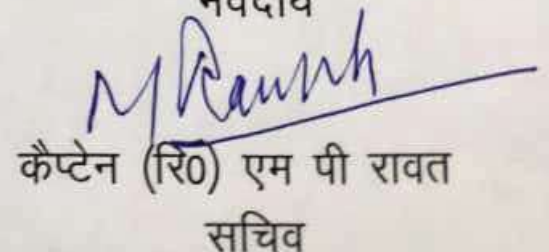 भवदीय
M Rawat
कैप्टेन (रि0) एम पी रावत
सचिव